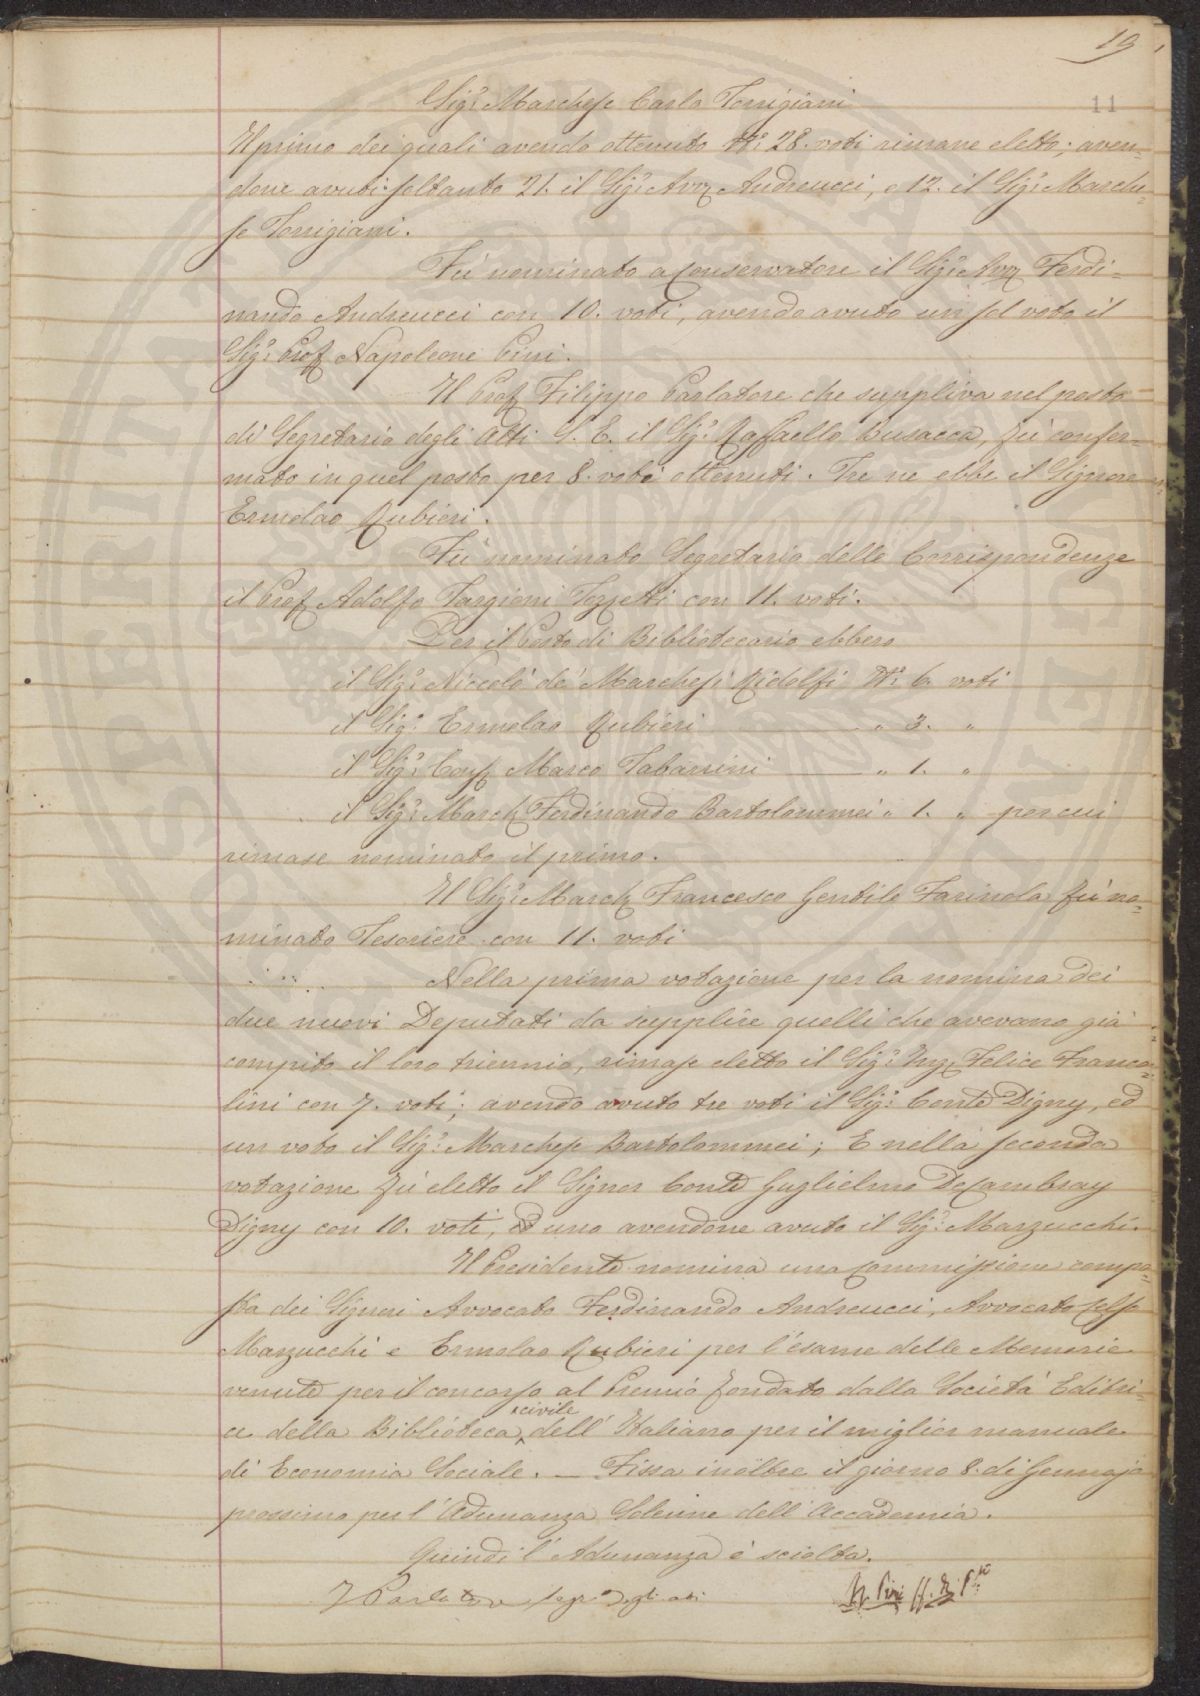 19
11
Sig.r Marchese Carlo Torrigiani
Il primo dei quali avendo ottenuto N.° 28. voti rimane eletto; aven=
done avuti soltanto 21. il Sig.r Avv Andreucci, e 12. il Sig.r Marche=
se Torrigiani.
Fù nominato a Conservatore il Sig.r Avv Ferdi=
nando Andreucci con 10. voti, avendo avuto un sol voto il
Sig.r Prof Napoleone Pini.
Il Prof Filippo Parlatore che suppliva nel posto
di Segretario degli Atti S. E. il Sig.r Raffaello Busacca, fù confer=
mato in quel posto per 8. voti ottenuti. Tre ne ebbe il Signore
Ermolao Rubieri.
Fù nominato Segretario delle Corrispondenze
il Prof Adolfo Targioni Tozzetti con 11. voti.
Per il Posto di Bibliotecario ebbero
il Sig.r Niccolò de' Marchesi Ridolfi N.° 6. voti
il Sig.r Ermolao Rubieri " 3. "
il Sig.r Cons Marco Tabarrini " 1. "
il Sig.r March Ferdinando Bartolommei " 1. " per cui
rimase nominato il primo.
Il Sig.r March Francesco Gentile Farinola fù no=
minato Tesoriere con 11. voti
Nella prima votazione per la nomina dei
due nuovi Deputati da supplire quelli che avevano già
compito il loro triennio, rimase eletto il Sig.r Ing Felice Franco=
lini con 7. voti; avendo avuto tre voti il Sig.r Conte Digny, ed
un voto il Sig.r Marchese Bartolommei; E nella seconda
votazione fù eletto il Signor Conte Guglielmo DeCambray
Digny con 10. voti, ed uno avendone avuto il Sig.r Marzucchi.
Il Presidente nomina una Commissione compo=
sta dei Signori Avvocato Ferdinando Andreucci, Avvocato Celso
Marzucchi e Ermolao Rubieri per l'esame delle Memorie
venute per il concorso al Premio fondato dalla Società Editri=
ce della Biblioteca civile dell'Italiano per il miglior manuale
di Economia Sociale. — Fissa inoltre il giorno 8. di Gennajo
prossimo per l'Adunanza Solenne dell'Accademia.
Quindi l'Adunanza è sciolta.
F Parlatore, Segr degli atti
N. Pini ff. di P.te